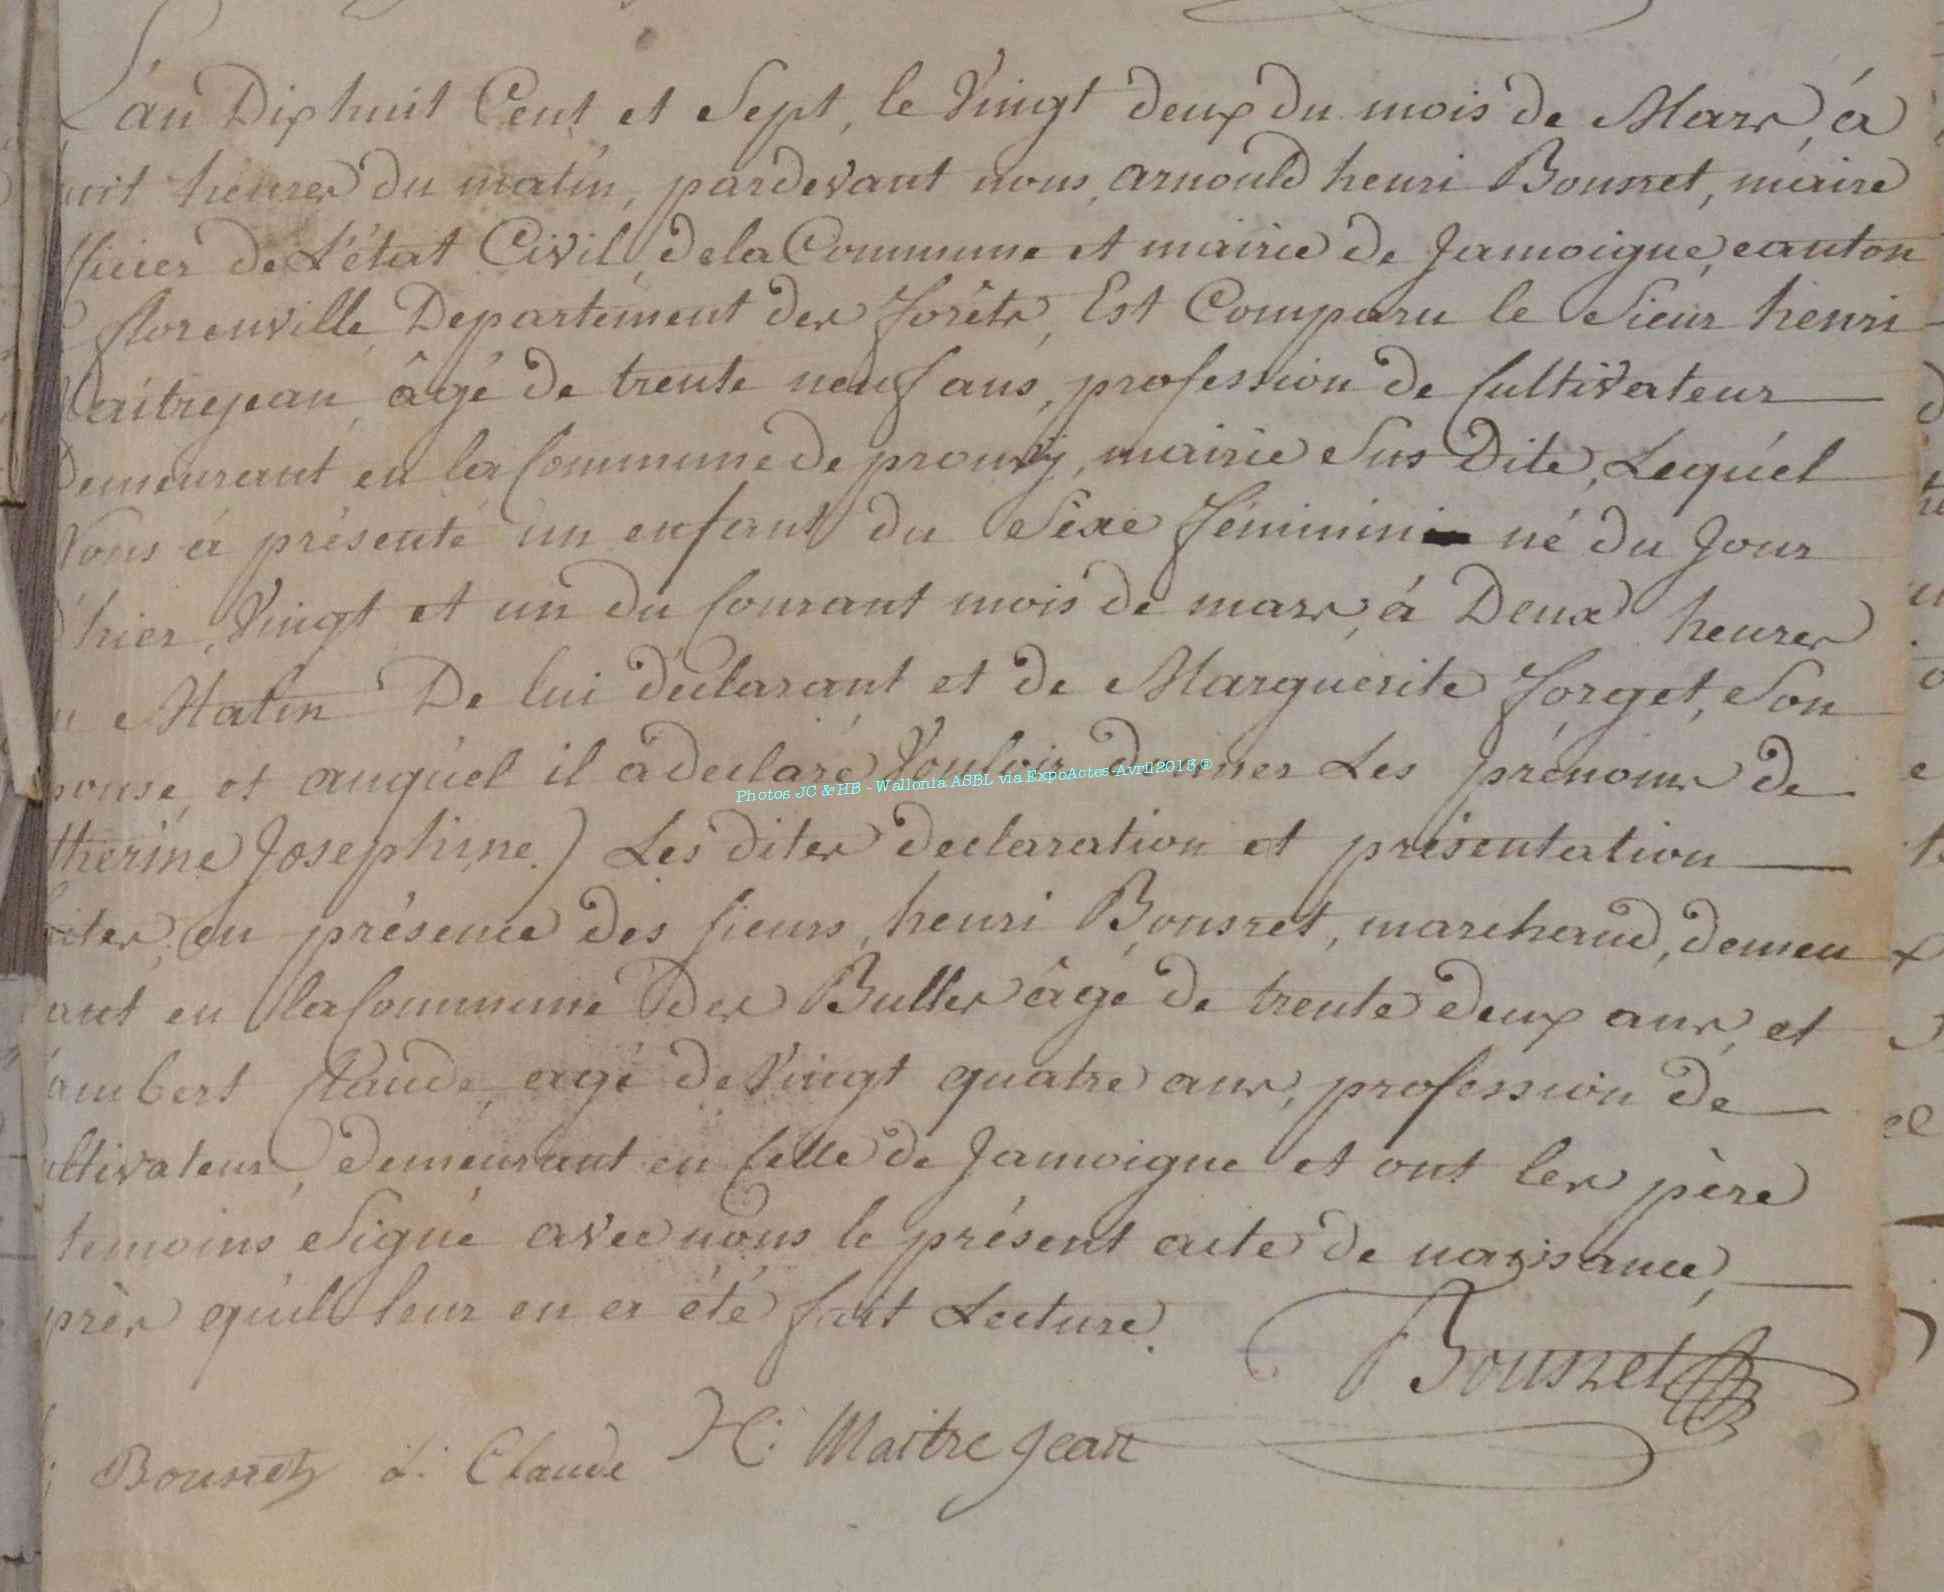 L'án Dix huit Cent et Sept, le Vingt deux du mois de Mars, á
uit heures du matin, pardevant nous, arnould henri Bousret, maire
fficier de L'état Civil, de la Commune et mairie de Jamoigne, canton
florenville, Departement des forêts, Est Comparu le Sieur henri
Maitrejean, âgé de trente neuf ans, profession de Cultivateur
Demeurant en la Commune de prouvÿ, mairie Sus Dite, Lequel
Nous á présenté un enfant du Séxe féminin né du Jour
d'hier, Vingt et un du Courant mois de mars, á Deux heures
u Matin De lui déclarant et de Marguerite forget, Son
pouse, et auquel il á declaré Vouloir donner Les prénoms de
therine Josephine.) Les dites declaration et présentation
aites, en présence des sieurs, henri Bousret, marchand, demeu
ant en la Commune Des Bulles âgé de trente deux ans, et
Lambert Claude, agé de Vingt quatre ans, profession de
ultivateur, demeurant en Celle de Jamoigne et ont les père
temoins Signé avec nous le présent acte de naissance,
près qu'il leur en á été fait Lecture.
Bousret
Bousret L: Claude H: Maitre Jean
Photos JC & HB - Wallonia ASBL via ExpoActes-Avril 2013 ©